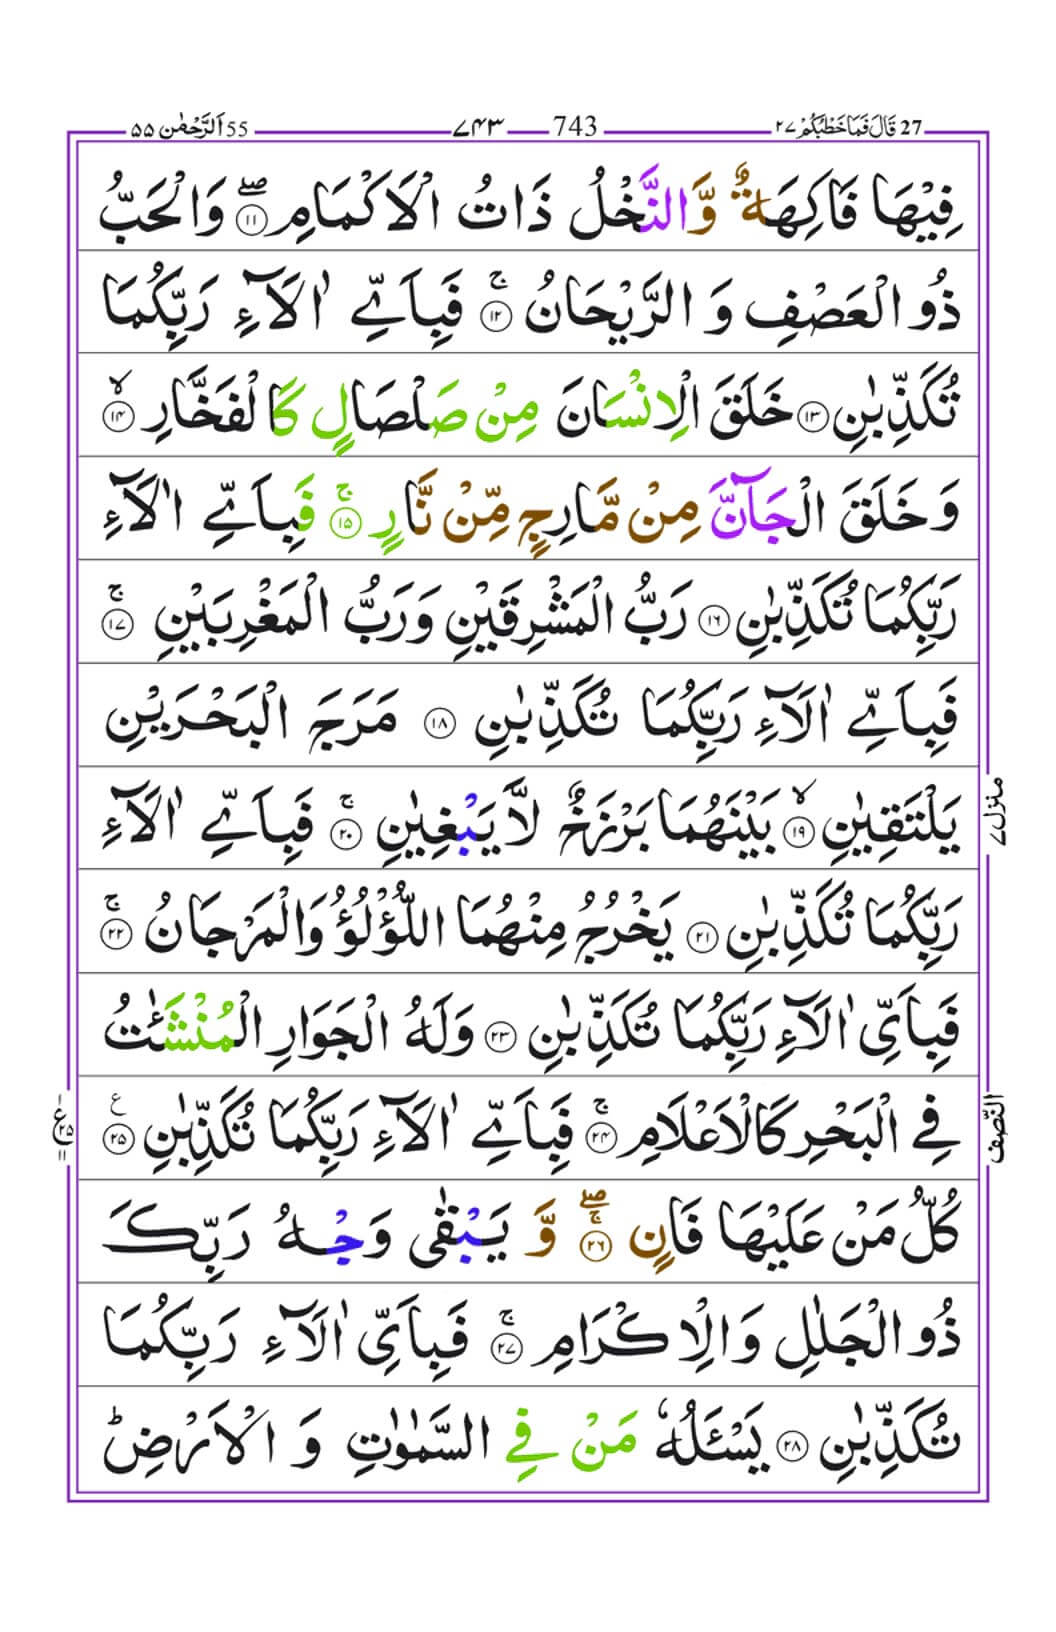 27 قَالَ فَمَا خَطْبُكُمْ ۲۷ 743 ۷۴۳ 55 اَلرَّحْمٰن ۵۵
فِيْهَا فَاكِهَةٌ وَّالنَّخْلُ ذَاتُ الْاَكْمَامِ ۖ ۱۱ وَالْحَبُّ
ذُو الْعَصْفِ وَ الرَّيْحَانُ ۚ ۱۲ فَبِاَيِّ اٰلَآءِ رَبِّكُمَا
تُكَذِّبٰنِ ۱۳ خَلَقَ الْاِنْسَانَ مِنْ صَلْصَالٍ كَالْفَخَّارِ ۙ ۱۴
وَ خَلَقَ الْجَآنَّ مِنْ مَّارِجٍ مِّنْ نَّارٍ ۚ ۱۵ فَبِاَيِّ اٰلَآءِ
رَبِّكُمَا تُكَذِّبٰنِ ۱۶ رَبُّ الْمَشْرِقَيْنِ وَرَبُّ الْمَغْرِبَيْنِ ۚ ۱۷
فَبِاَيِّ اٰلَآءِ رَبِّكُمَا تُكَذِّبٰنِ ۱۸ مَرَجَ الْبَحْرَيْنِ
يَلْتَقِيٰنِ ۙ ۱۹ بَيْنَهُمَا بَرْزَخٌ لَّا يَبْغِيٰنِ ۚ ۲۰ فَبِاَيِّ اٰلَآءِ
رَبِّكُمَا تُكَذِّبٰنِ ۲۱ يَخْرُجُ مِنْهُمَا اللُّؤْلُؤُ وَالْمَرْجَانُ ۚ ۲۲
فَبِاَيِّ اٰلَآءِ رَبِّكُمَا تُكَذِّبٰنِ ۲۳ وَلَهُ الْجَوَارِ الْمُنْشَـٰٔتُ
فِي الْبَحْرِ كَالْاَعْلَامِ ۚ ۲۴ فَبِاَيِّ اٰلَآءِ رَبِّكُمَا تُكَذِّبٰنِ ۲۵ ع
كُلُّ مَنْ عَلَيْهَا فَانٍ ۖۚ ۲۶ وَّ يَبْقٰى وَجْهُ رَبِّكَ
ذُو الْجَلٰلِ وَالْاِكْرَامِ ۚ ۲۷ فَبِاَيِّ اٰلَآءِ رَبِّكُمَا
تُكَذِّبٰنِ ۲۸ يَسْـَٔلُهٗ مَنْ فِي السَّمٰوٰتِ وَ الْاَرْضِ ؕ
منزل ۷
النّصف
ع ۲۵ ۱۱